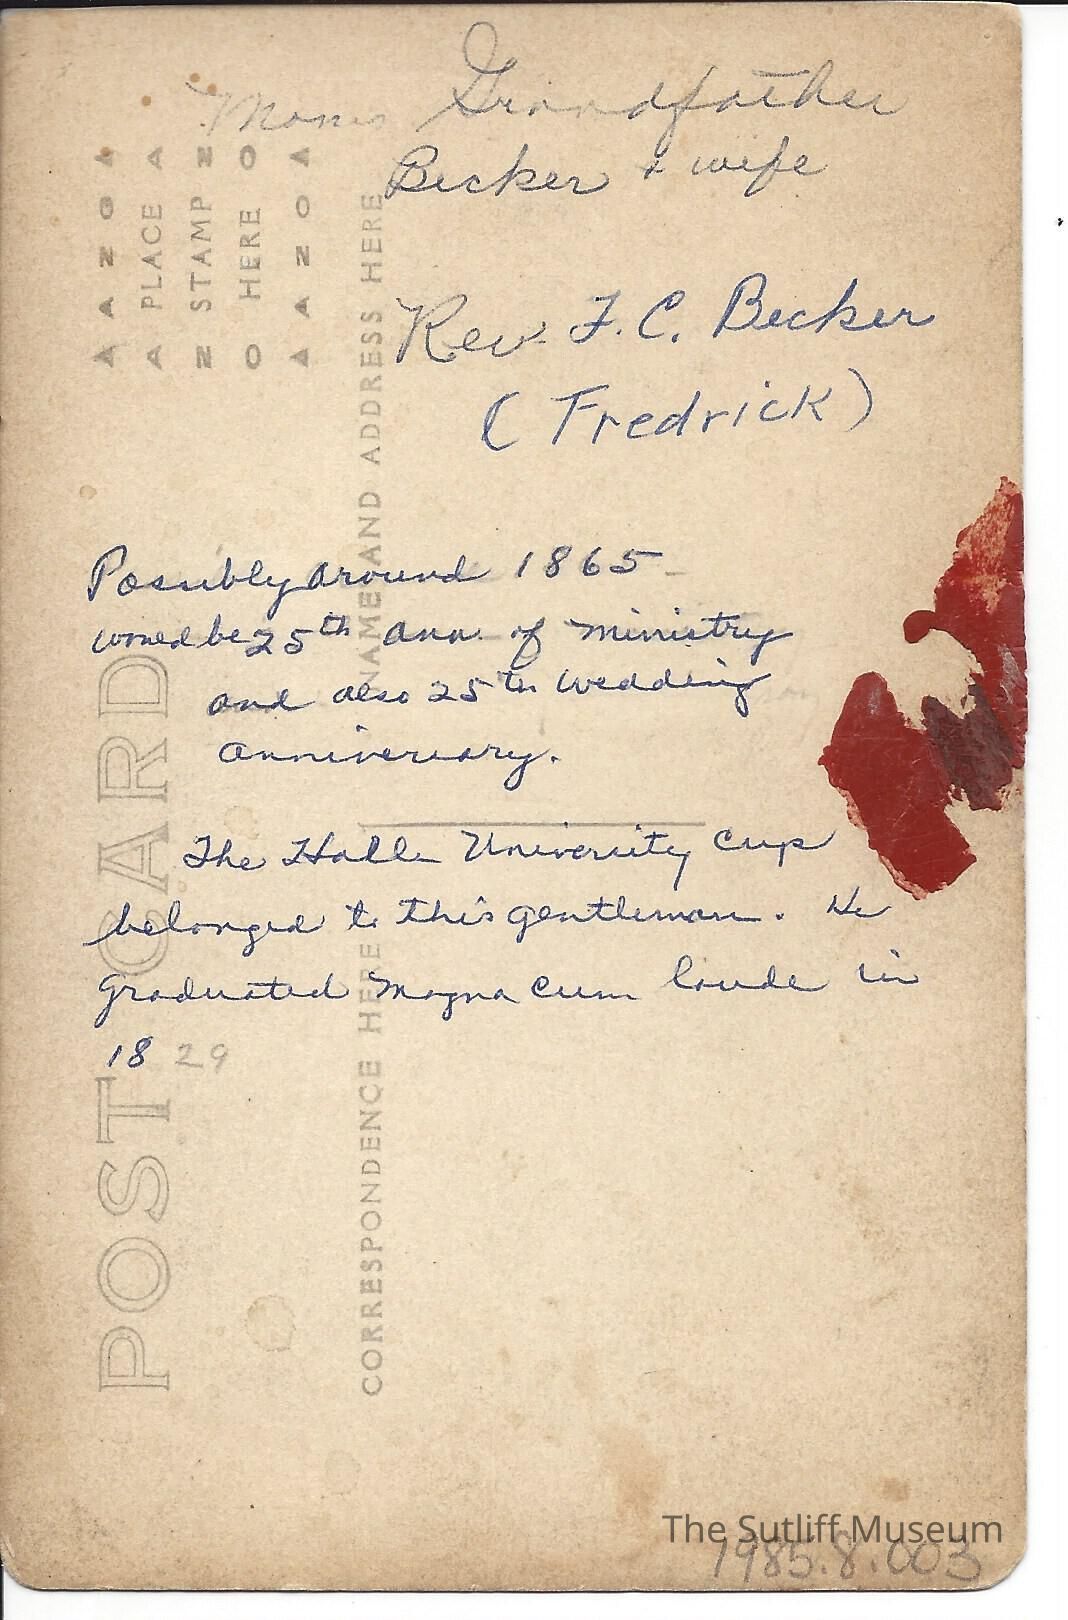 Moms Grandfather
Becker & wife
Rev. F. C. Becker
(Fredrick)
Possibly around 1865
would be 25th ann. of ministry
and also 25th wedding
anniversary.
The Halle University cup
belonged to this gentleman. He
graduated magna cum laude in
1829
POST CARD
CORRESPONDENCE HERE
NAME AND ADDRESS HERE
▲ ▲ Z O ▲
A PLACE A
Z STAMP Z
O HERE O
▲ ▲ Z O ▲
The Sutliff Museum
1985.8.003